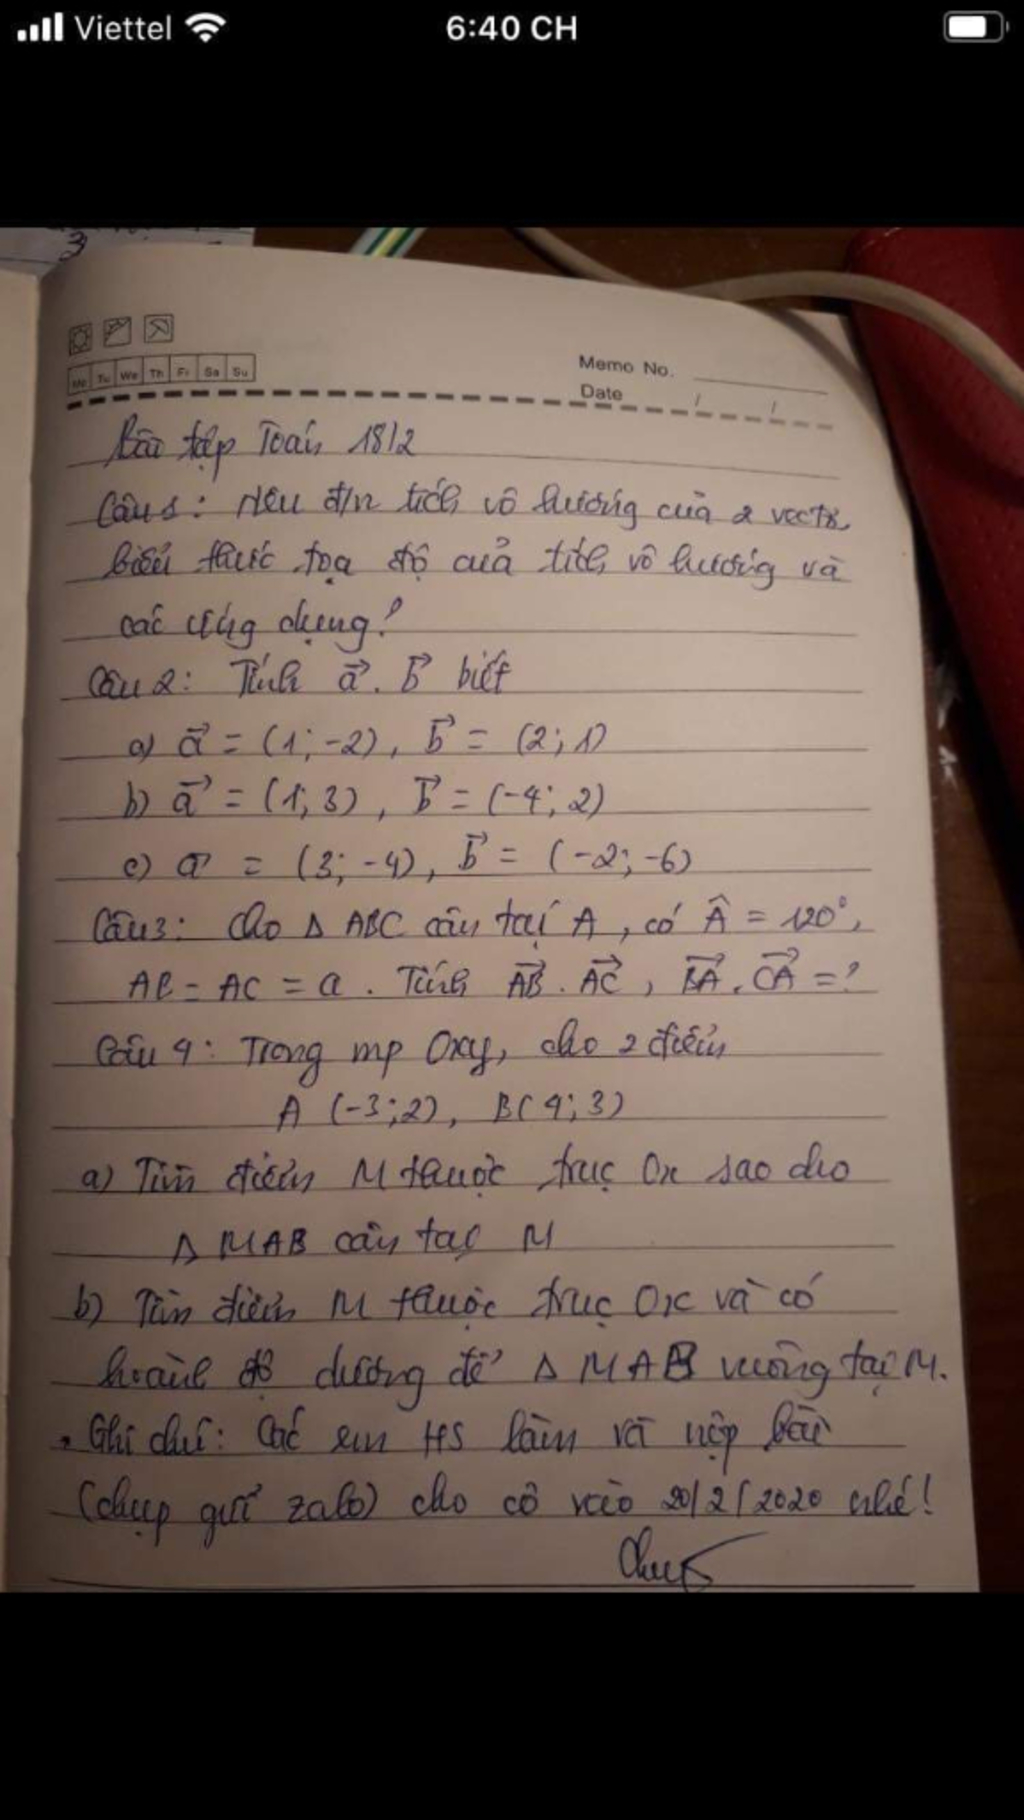 Viettel 6:40 CH
3
Mo Tu We Th Fr Sa Su
Memo No.
Date / /
Bài tập Toán 18/2
Câu 1: Nêu đ/n tích vô hướng của 2 vectơ,
biểu thức tọa độ của tích vô hướng và
các ứng dụng?
Câu 2: Tính a⃗ . b⃗ biết
a) a⃗ = (1; -2), b⃗ = (2; 1)
b) a⃗ = (1; 3), b⃗ = (-4; 2)
c) a⃗ = (3; -4), b⃗ = (-2; -6)
Câu 3: Cho Δ ABC cân tại A, có Â = 120°,
AB = AC = a. Tính AB⃗ . AC⃗ , BA⃗ . CA⃗ = ?
Câu 4: Trong mp Oxy, cho 2 điểm
A (-3; 2), B(4; 3)
a) Tìm điểm M thuộc trục Ox sao cho
Δ MAB cân tại M
b) Tìm điểm M thuộc trục Ox và có
hoành độ dương để Δ MAB vuông tại M.
. Ghi chú: Các em HS làm và nộp bài
(chụp gửi zalo) cho cô vào 20/2/2020 nhé!